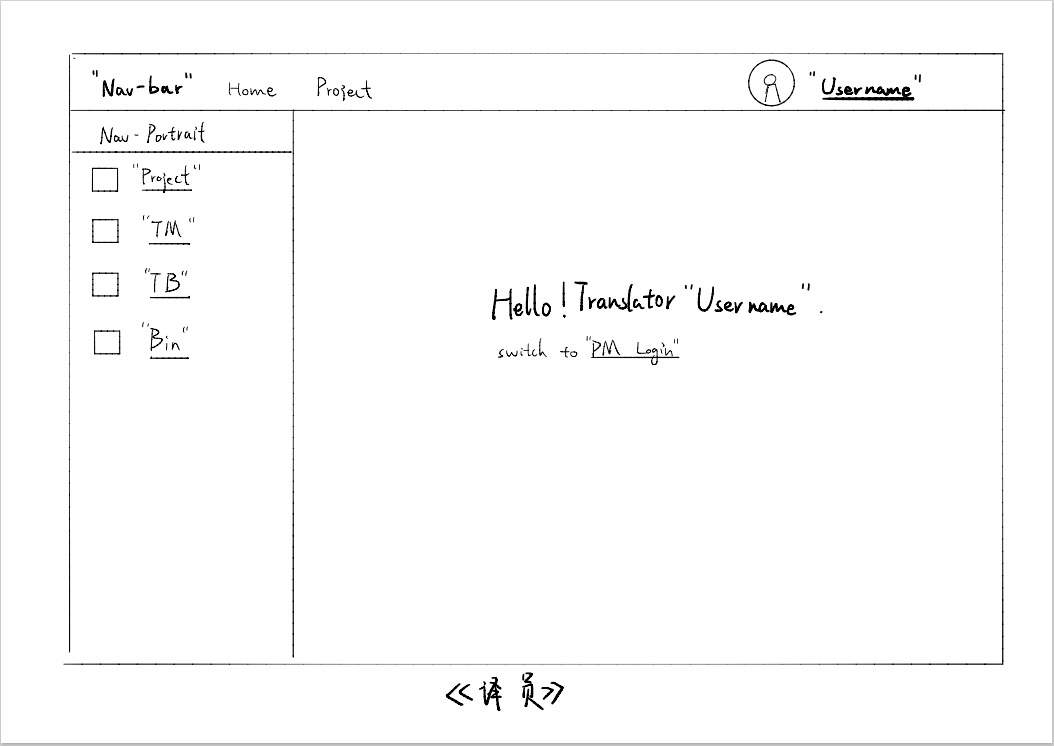 "Nav-bar" Home Project "Username"
Nav-Portrait
"Project"
"TM"
"TB"
"Bin"
Hello! Translator "Username".
switch to "PM Login"
《译员》